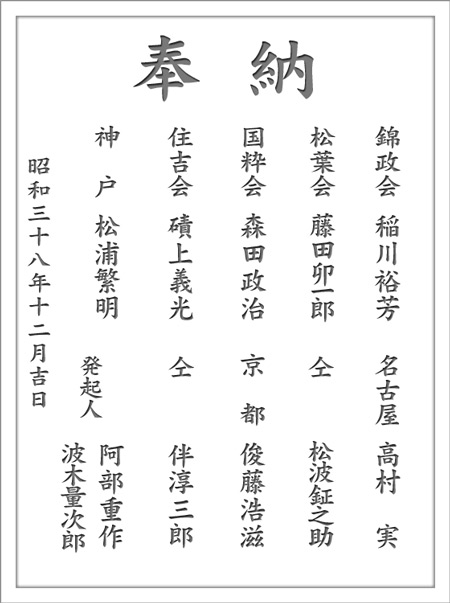 奉 納
錦政会 稲川裕芳 名古屋 高村 実
松葉会 藤田卯一郎 仝 松波鉦之助
国粋会 森田政治 京都 俊藤浩滋
住吉会 磧上義光 仝 伴淳三郎
神戸 松浦繁明
発起人 阿部重作
波木量次郎
昭和三十八年十二月吉日